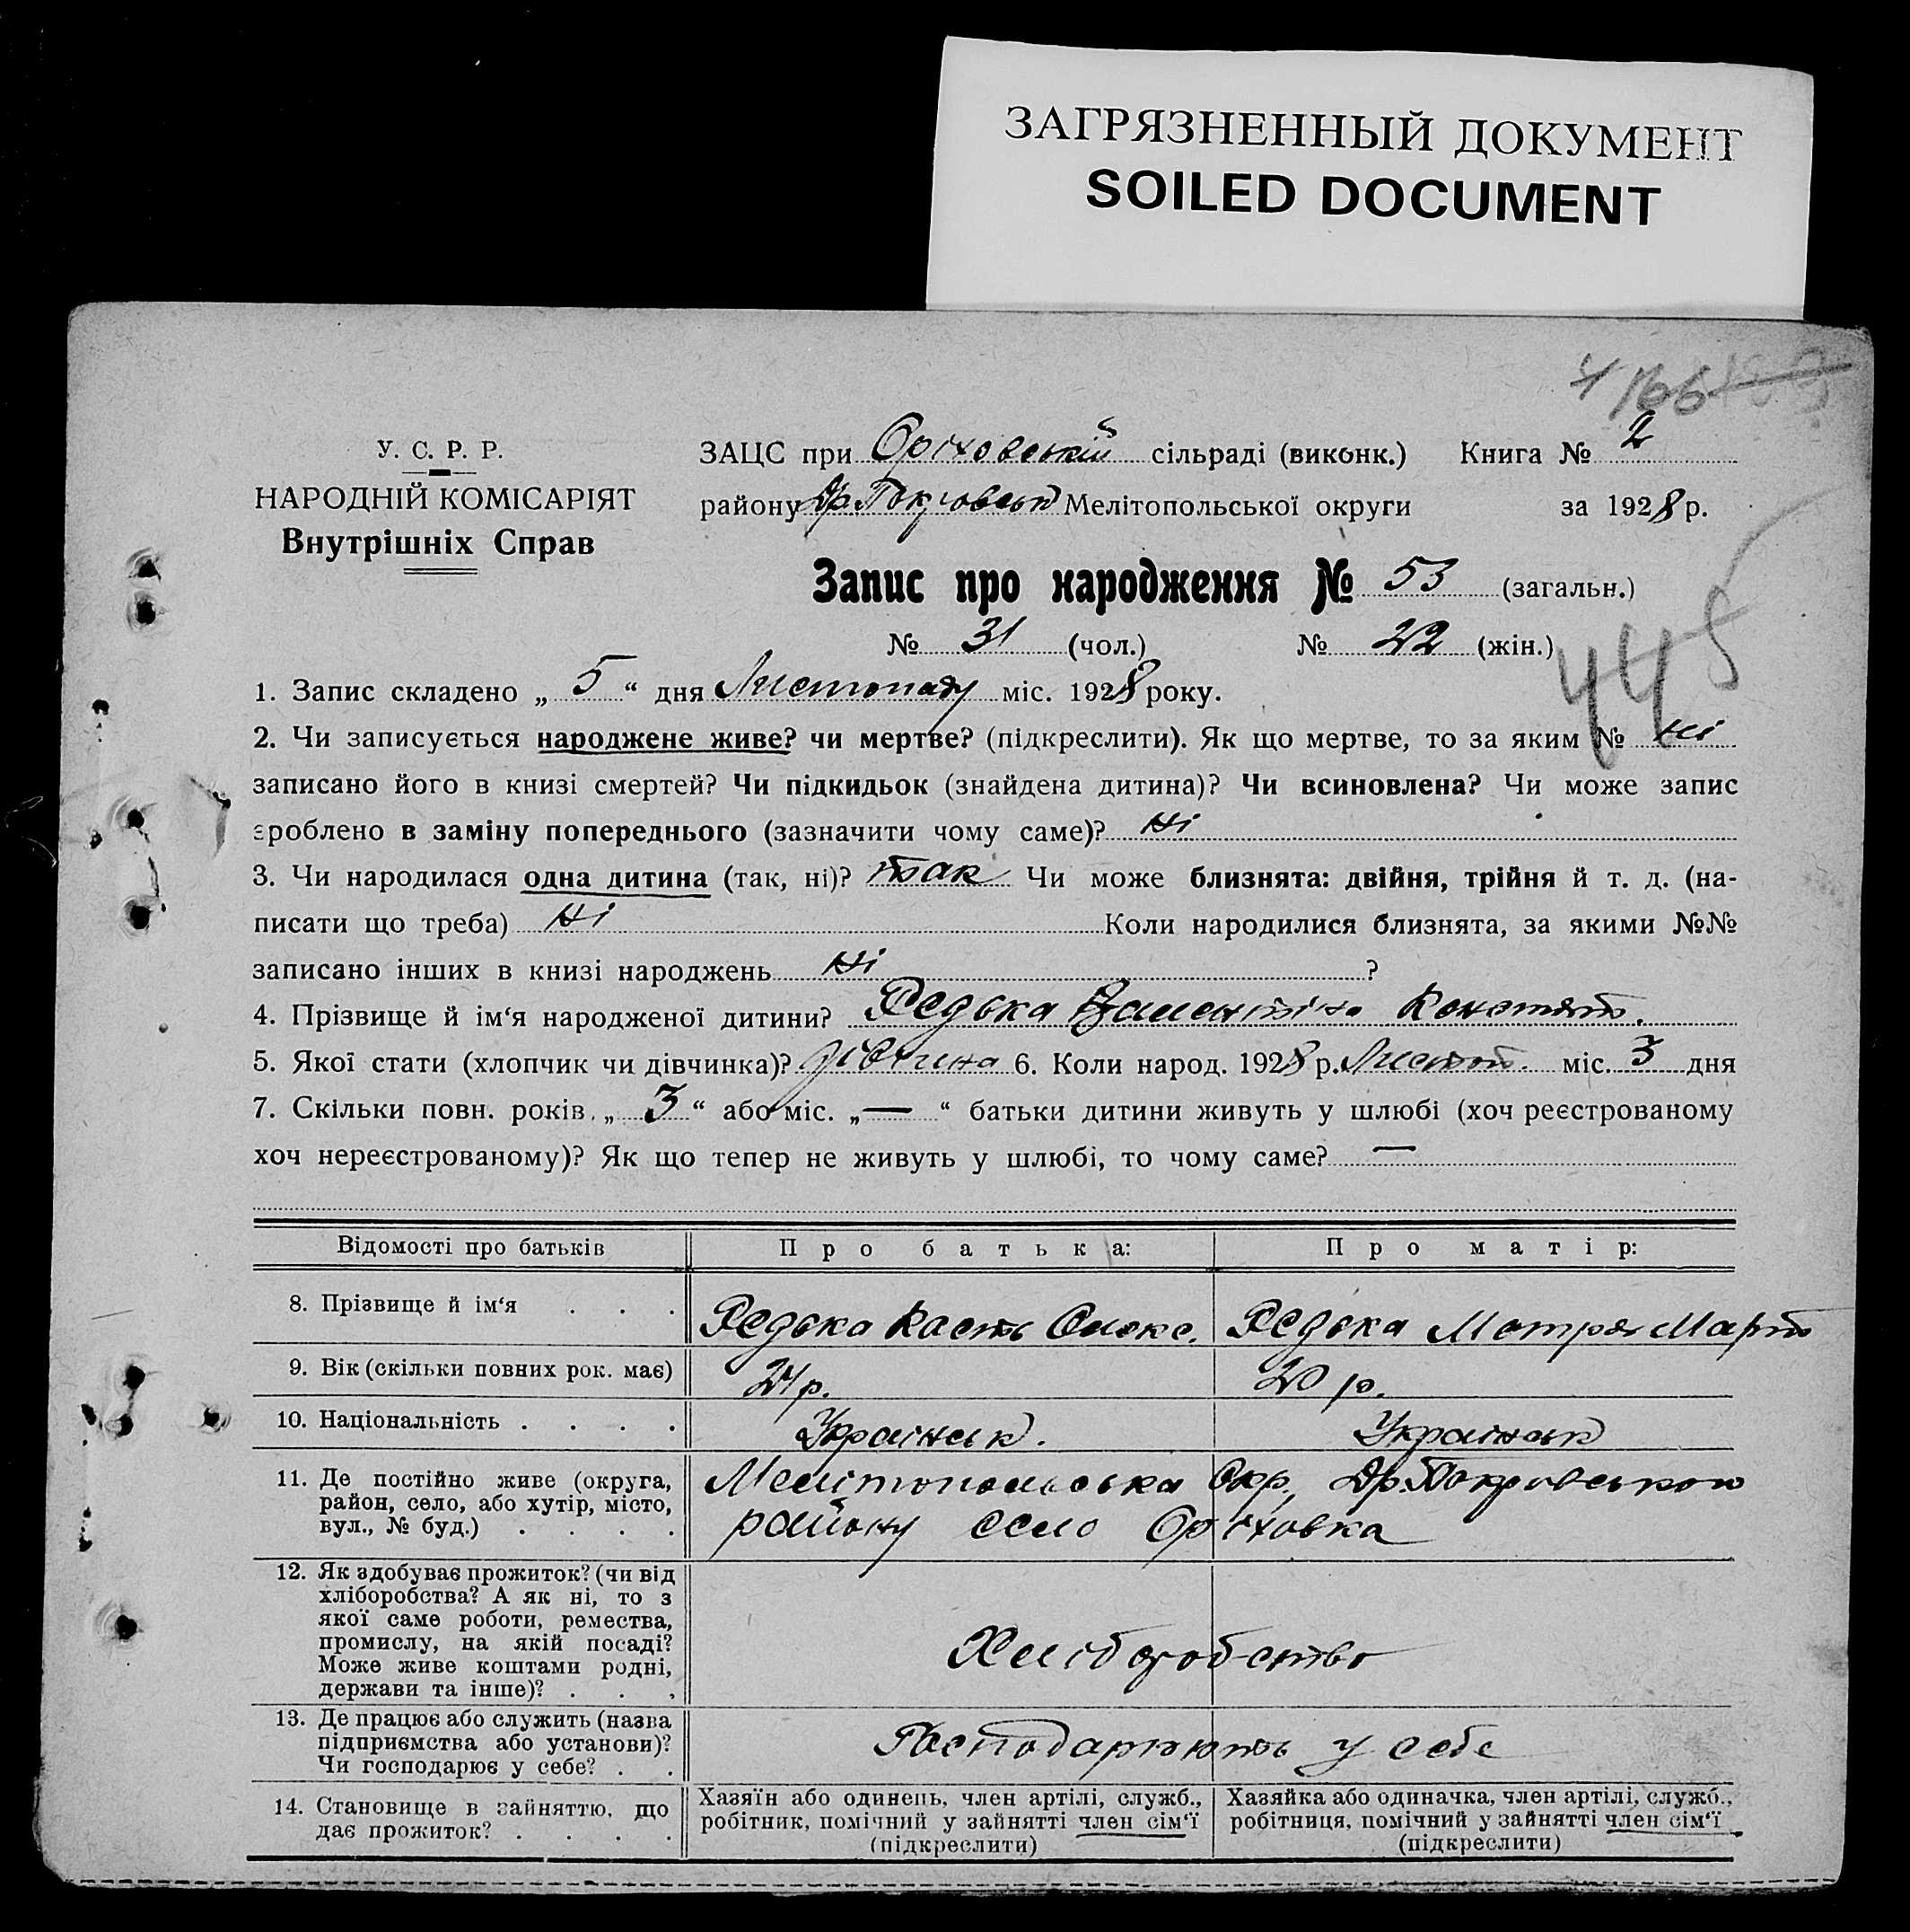 ЗАГРЯЗНЕННЫЙ ДОКУМЕНТ
SOILED DOCUMENT
166
У. С. Р. Р.
НАРОДНІЙ КОМІСАРІЯТ
Внутрішніх Справ
ЗАЦС при Оріховській сільраді (виконк.) Книга № 2
району Др. Покровськ Мелітопольської округи за 1928 р.
Запис про народження № 53 (загальн.)
№ 31 (чол.) № 22 (жін.)
445
1. Запис складено „ 5 “ дня Листопаду міс. 1928 року.
2. Чи записується народжене живе? чи мертве? (підкреслити). Як що мертве, то за яким № ні
записано його в книзі смертей? Чи підкидьок (знайдена дитина)? Чи всиновлена? Чи може запис
зроблено в заміну попереднього (зазначити чому саме)? Ні
3. Чи народилася одна дитина (так, ні)? так Чи може близнята: двійня, трійня й т. д. (на-
писати що треба) Ні Коли народилися близнята, за якими №№
записано інших в книзі народжень Ні ?
4. Прізвище й ім‘я народженої дитини? Редька Валентіна Констянт.
5. Якої стати (хлопчик чи дівчинка)? дівчина 6. Коли народ. 1928 р. Листоп. міс. 3 дня
7. Скільки повн. років „ 3 “ або міс. „ — “ батьки дитини живуть у шлюбі (хоч реєстрованому
хоч нереєстрованому)? Як що тепер не живуть у шлюбі, то чому саме? —
Відомості про батьків Про батька: Про матір:
8. Прізвище й ім‘я . . . Редька Кость Олекс. Редька Мотря Март
9. Вік (скільки повних рок. має) 24 р. 20 р.
10. Національність . . . . Українськ. Українськ
11. Де постійно живе (округа,
район, село, або хутір, місто,
вул., № буд.) . . . .
Мелітопольська Окр, Др. Покровського
району село Оріховка
12. Як здобуває прожиток? (чи від
хліборобства? А як ні, то з
якої саме роботи, ремества,
промислу, на якій посаді?
Може живе коштами родні,
держави та інше)? . . .
Хліборобство
13. Де працює або служить (назва
підприємства або установи)?
Чи господарює у себе? . .
Господарюють у себе
14. Становище в зайняттю, що
дає прожиток? . . . .
Хазяїн або одинець, член артілі, служб.,
робітник, помічний у зайнятті член сім‘ї
(підкреслити)
Хазяйка або одиначка, член артілі, служб.,
робітниця, помічний у зайнятті член сім‘ї
(підкреслити)